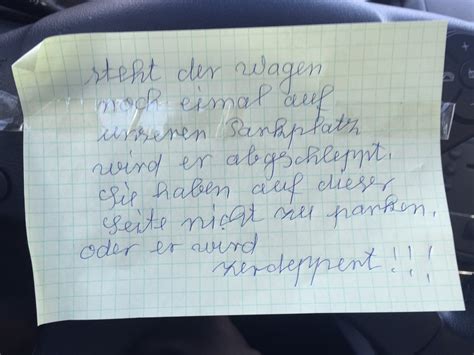 steht der Wagen
noch eimal auf
unseren Parkplatz
wird er abgschleppt.
Sie haben auf dieser
Seite nicht zu parken.
oder er wird
zerdeppert!!!